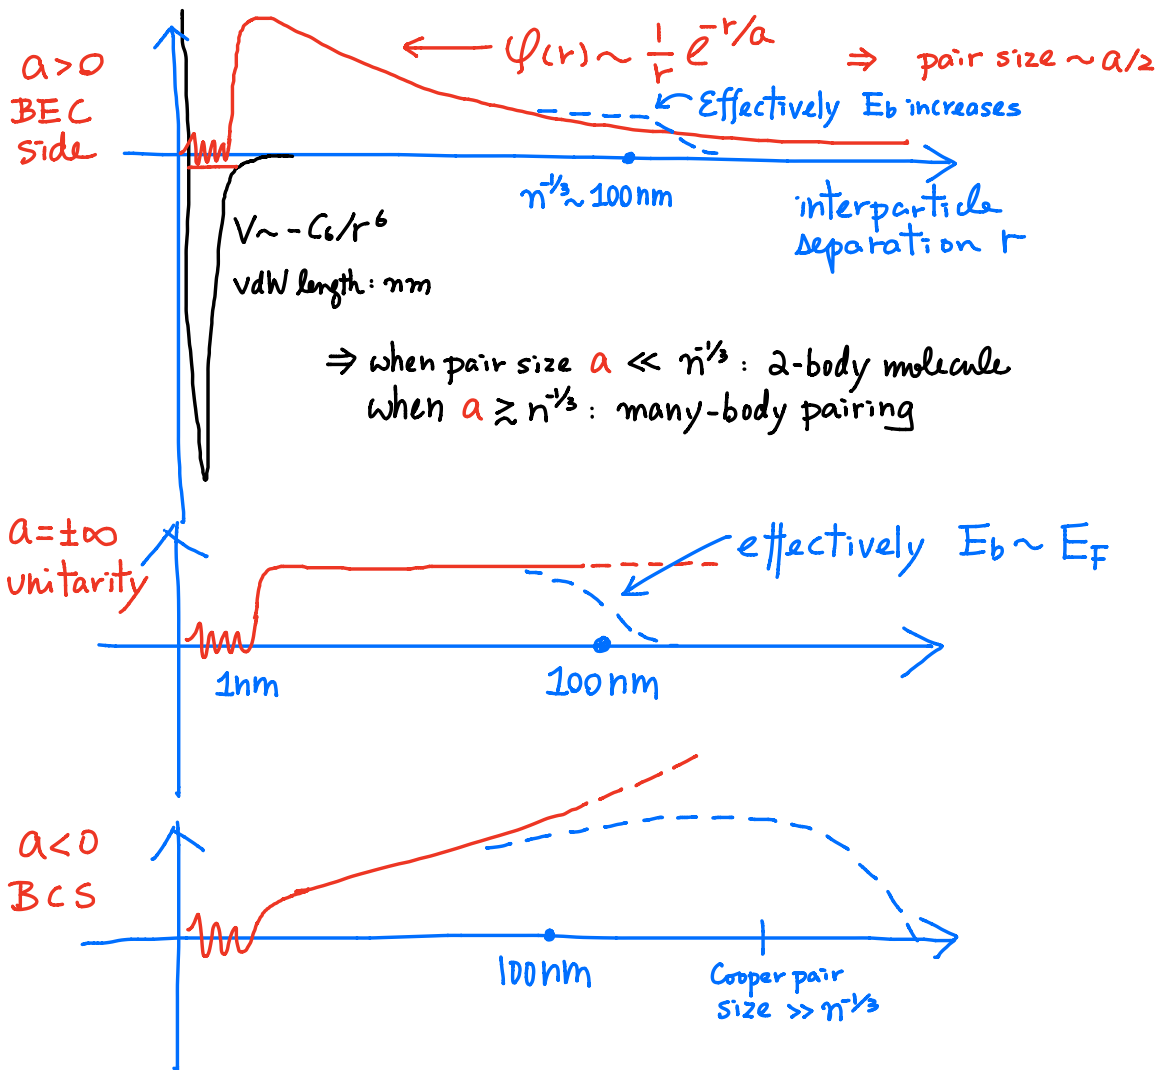 a>0
BEC
side
← φ(r) ~ 1/r e^{-r/a} ⇒ pair size ~ a/2
Effectively E_b increases
n^{-1/3} ~ 100nm
interparticle
separation r
V ~ -C₆/r⁶
vdW length: nm
⇒ when pair size a ≪ n^{-1/3} : 2-body molecule
when a ≳ n^{-1/3} : many-body pairing
a=±∞
unitarity
effectively E_b ~ E_F
1nm
100nm
a<0
BCS
100nm
Cooper pair
size >> n^{-1/3}